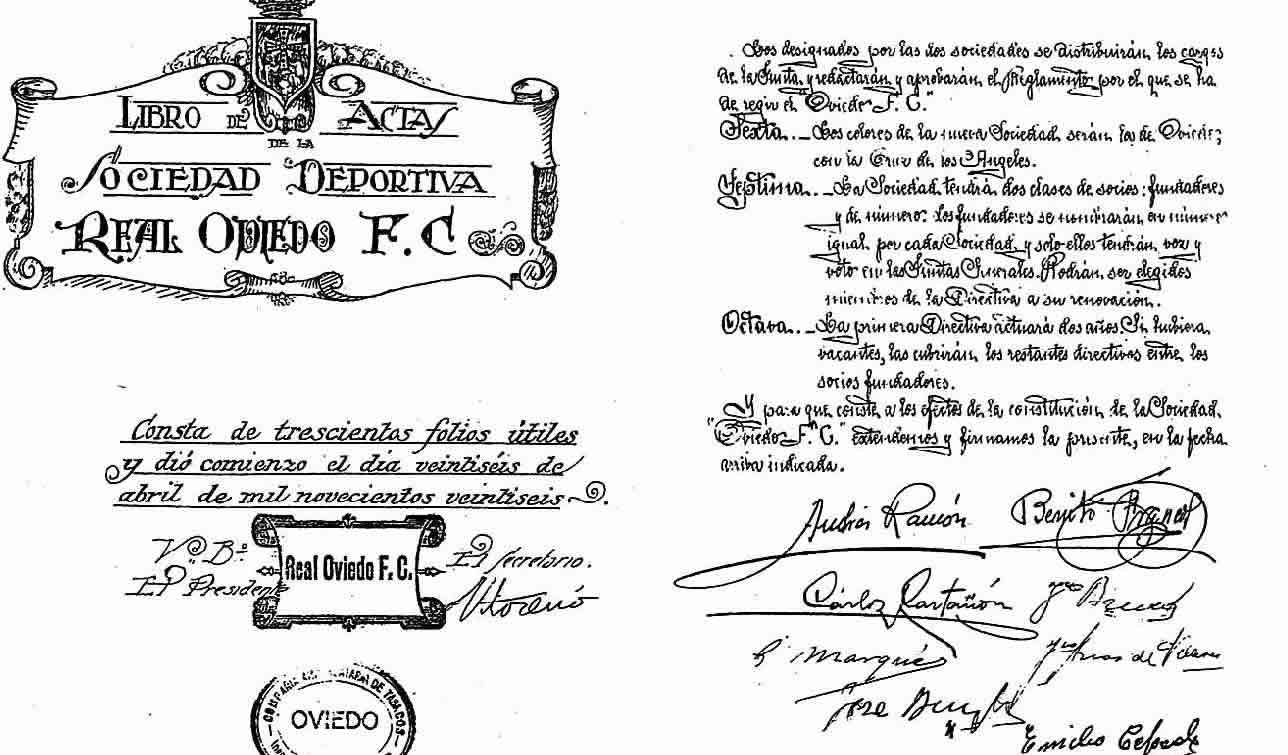 LIBRO DE ACTAS
DE LA
SOCIEDAD DEPORTIVA
REAL OVIEDO F. C
Consta de trescientos folios útiles
y dió comienzo el día veintiséis de
abril de mil novecientos veintiseis.
Vº Bº
El Presidente
Real Oviedo F. C.
El Secretario.
COMPAÑIA DE TABACOS
OVIEDO
Los designados por las dos sociedades se distribuirán los cargos
de la Junta y redactarán y aprobarán el Reglamento por el que se ha
de regir el "Oviedo F. C."
Sexta._ Los colores de la nueva Sociedad serán los de Oviedo;
con la Cruz de los Angeles.
Septima._ La Sociedad tendrá dos clases de socios: fundadores
y de número. Los fundadores se nombrarán en número
igual por cada Sociedad y solo ellos tendrán voz y
voto en las Juntas Generales. Podrán ser elegidos
miembros de la Directiva a su renovación.
Octava._ La primera Directiva actuará dos años. Si hubiera
vacantes, las cubrirán los restantes directivos entre los
socios fundadores.
Y para que conste a los efectos de la constitución de la Sociedad
"Oviedo F. C." extendemos y firmamos la presente, en la fecha
arriba indicada.
Ramón
Benito
Cárlos
Marqués
José
Emilio